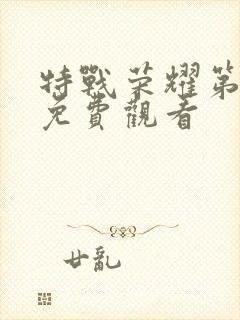 特戰荣耀第
免費觀看
廿亂